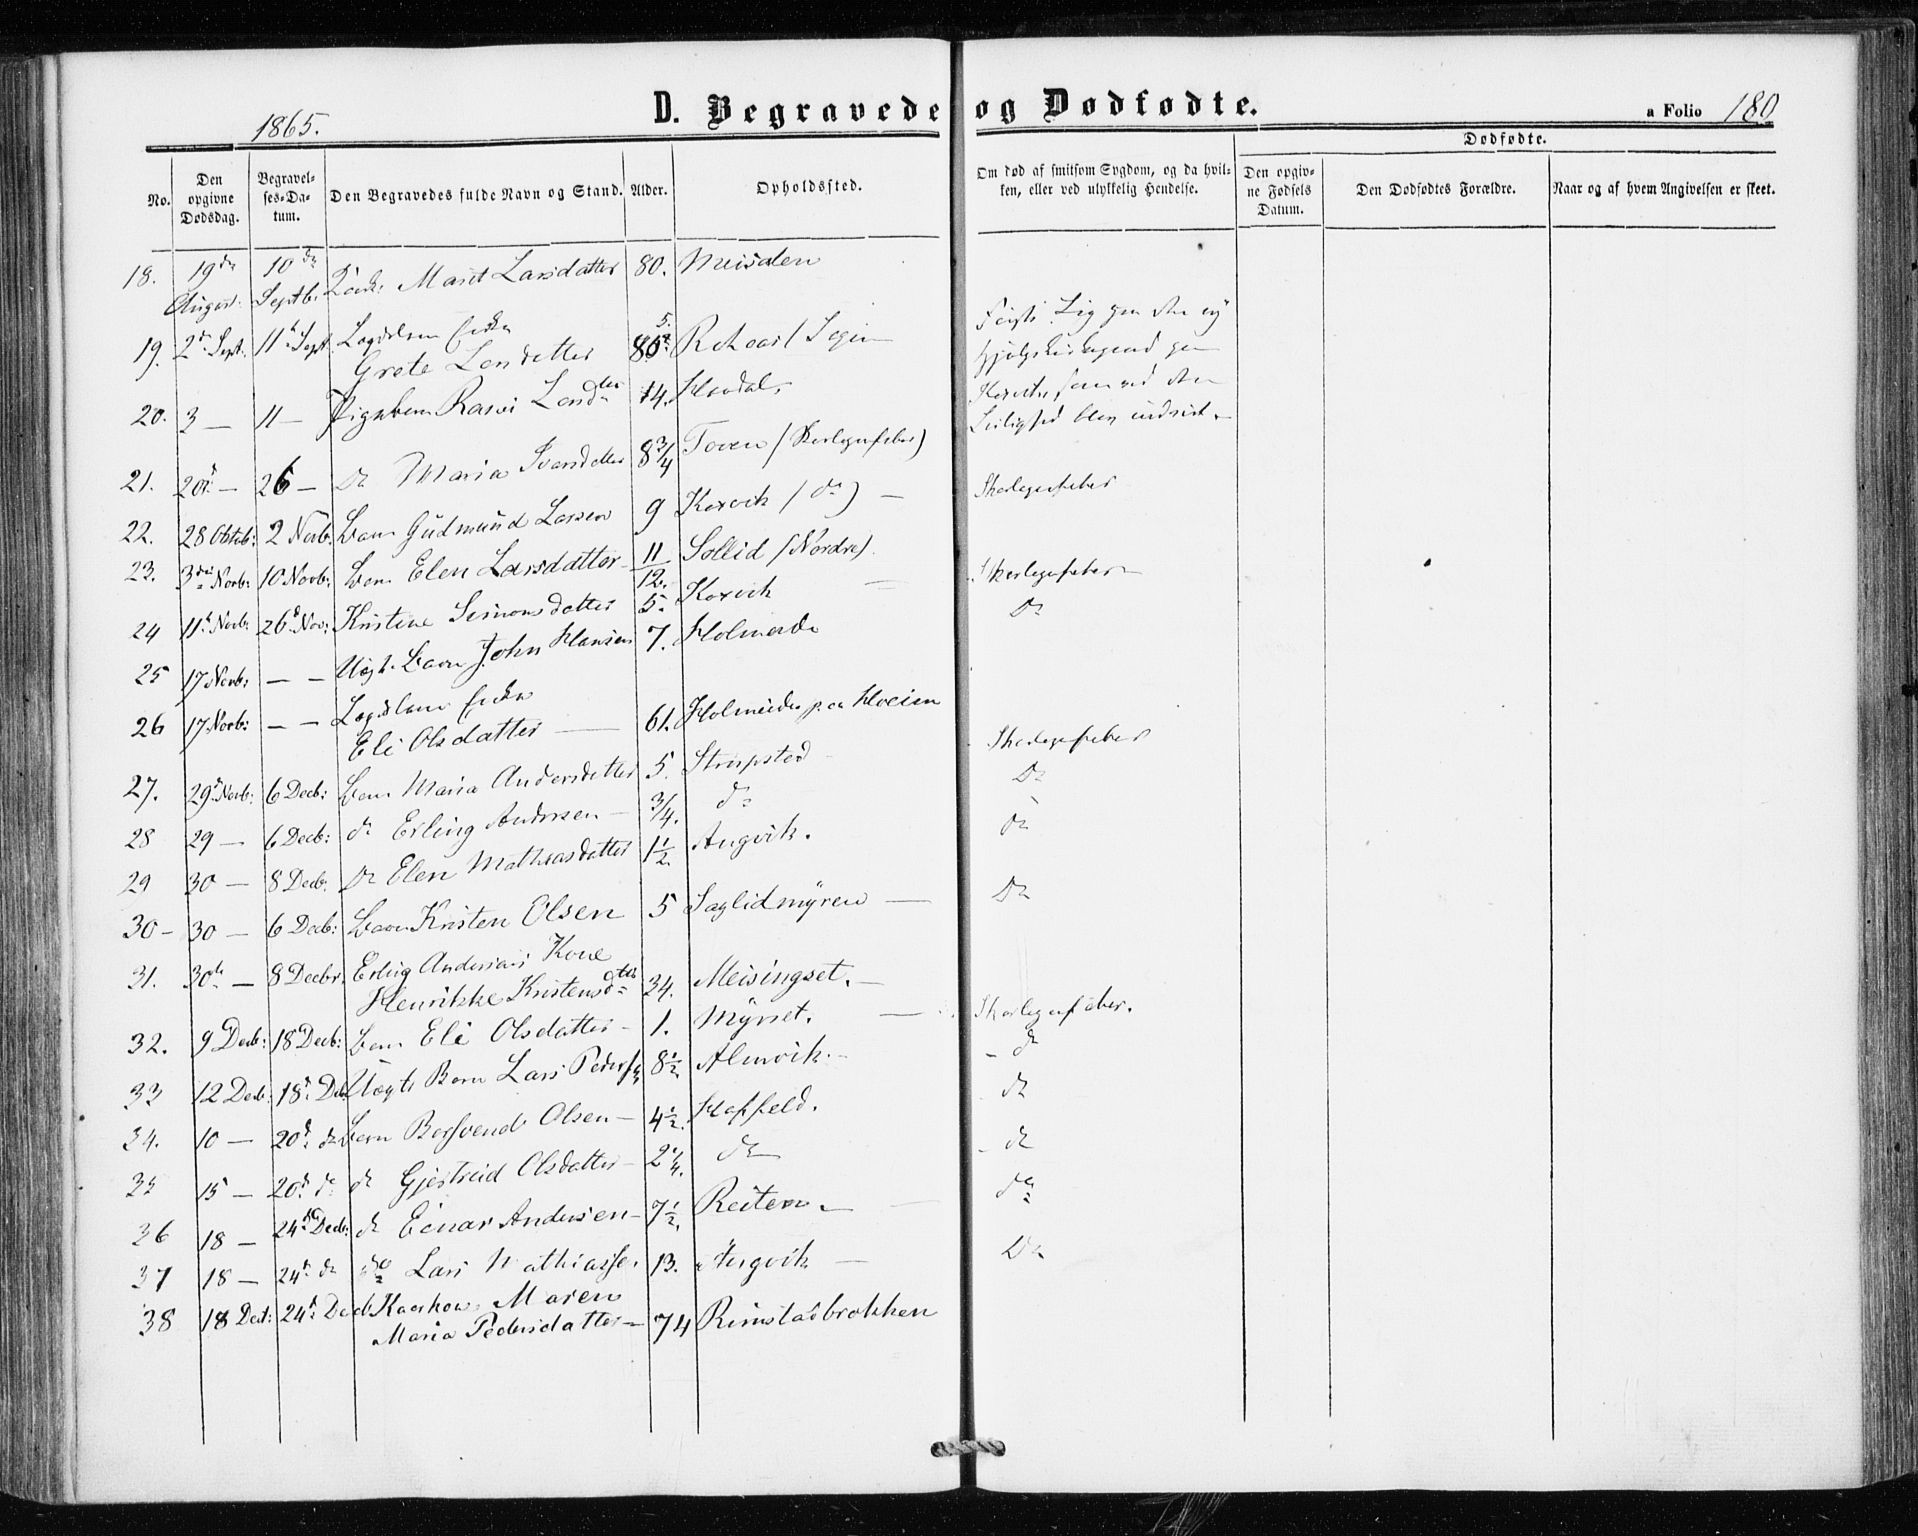 1865.
D. Begravede og Dødfødte.
a Folio 180
No.
Den opgivne Dødsdag.
Begravelses-Datum.
Den Begravedes fulde Navn og Stand.
Alder.
Opholdssted.
Om død af smitsom Sygdom, og da hvilken, eller ved ulykkelig Hendelse.
Dødfødte.
Den opgivne Fødsels Datum.
Den Dødfødtes Forældre.
Naar og af hvem Angivelsen er skeet.
18. 19de August. 10de Septb: Maret Larsdatter 80. Meisalen
19. 2de Sept. 11te Sept. Logdslem Enke
Grete Larsdatter 85
20. 3 — 11 — Pigebarn 14. Hovdal.
21. 20d. — 26 — Do Maria Iversdatter 8 3/4 Toven (Skarlagenfeber) Skarlagenfeber
22. 28 Octob: 2 Novb. Barn Gudmund Larsen 9 Korvik (do) —
23. 3die Novb: 10 Novb: Barn Elen Larsdatter 11/12. Sollid (Nordre). Skarlagenfeber
24 11te Novb: 26d. Nov: Kristine Simonsdatter 5. Korvik — Do
25 17 Novb: — — Uægt. Barn John Hansen 7. Holmeide
26 17 Novb: — — Logdslem Enke
Eli Olsdatter — 61. Holmeide paa Hoeim
27. 29d. Novb: 6 Decb: Barn Maria Andersdatter 5. Strupstad Skarlagenfeber
28 29 — 6 Decb: do Erling Andersen — 3/4. do Do
29 30 — 8 Decb. Do Elen Mathiasdatter 1 1/2. Angvik. do
30 — 30 — 6 Decb: Barn Kristen Olsen 5 Saglidmyren — Do
31. 30te — 8 Decbr. Erling Andersens Kone
Henrikke Kristensdtr 34. Meisingset. —
32. 9 Decb: 18 Decb: Barn Eli Olsdatter — 1. Myrset. — Skarlagenfeber.
33 12 Decb: 18d. Dec Uægte Barn Lars Pedersen 8 1/2 Almvik. — do
34. 10 — 20d. do Barn Bersvend Olsen — 4 1/2. Hoffeld. do
35 15 — 20d. do do Gjertrud Olsdatter — 2 1/4. do do
36 18 — 24de Decb: do Einar Andersen — 7 1/2. Reiten. — do
37 18 — 24d. do do Lars Mathiassen 13. Angvik — Do
38 18 Dec: 24d. Decb Kaarkone Maren
Maria Pedersdatter — 74 Rimstadbrokken